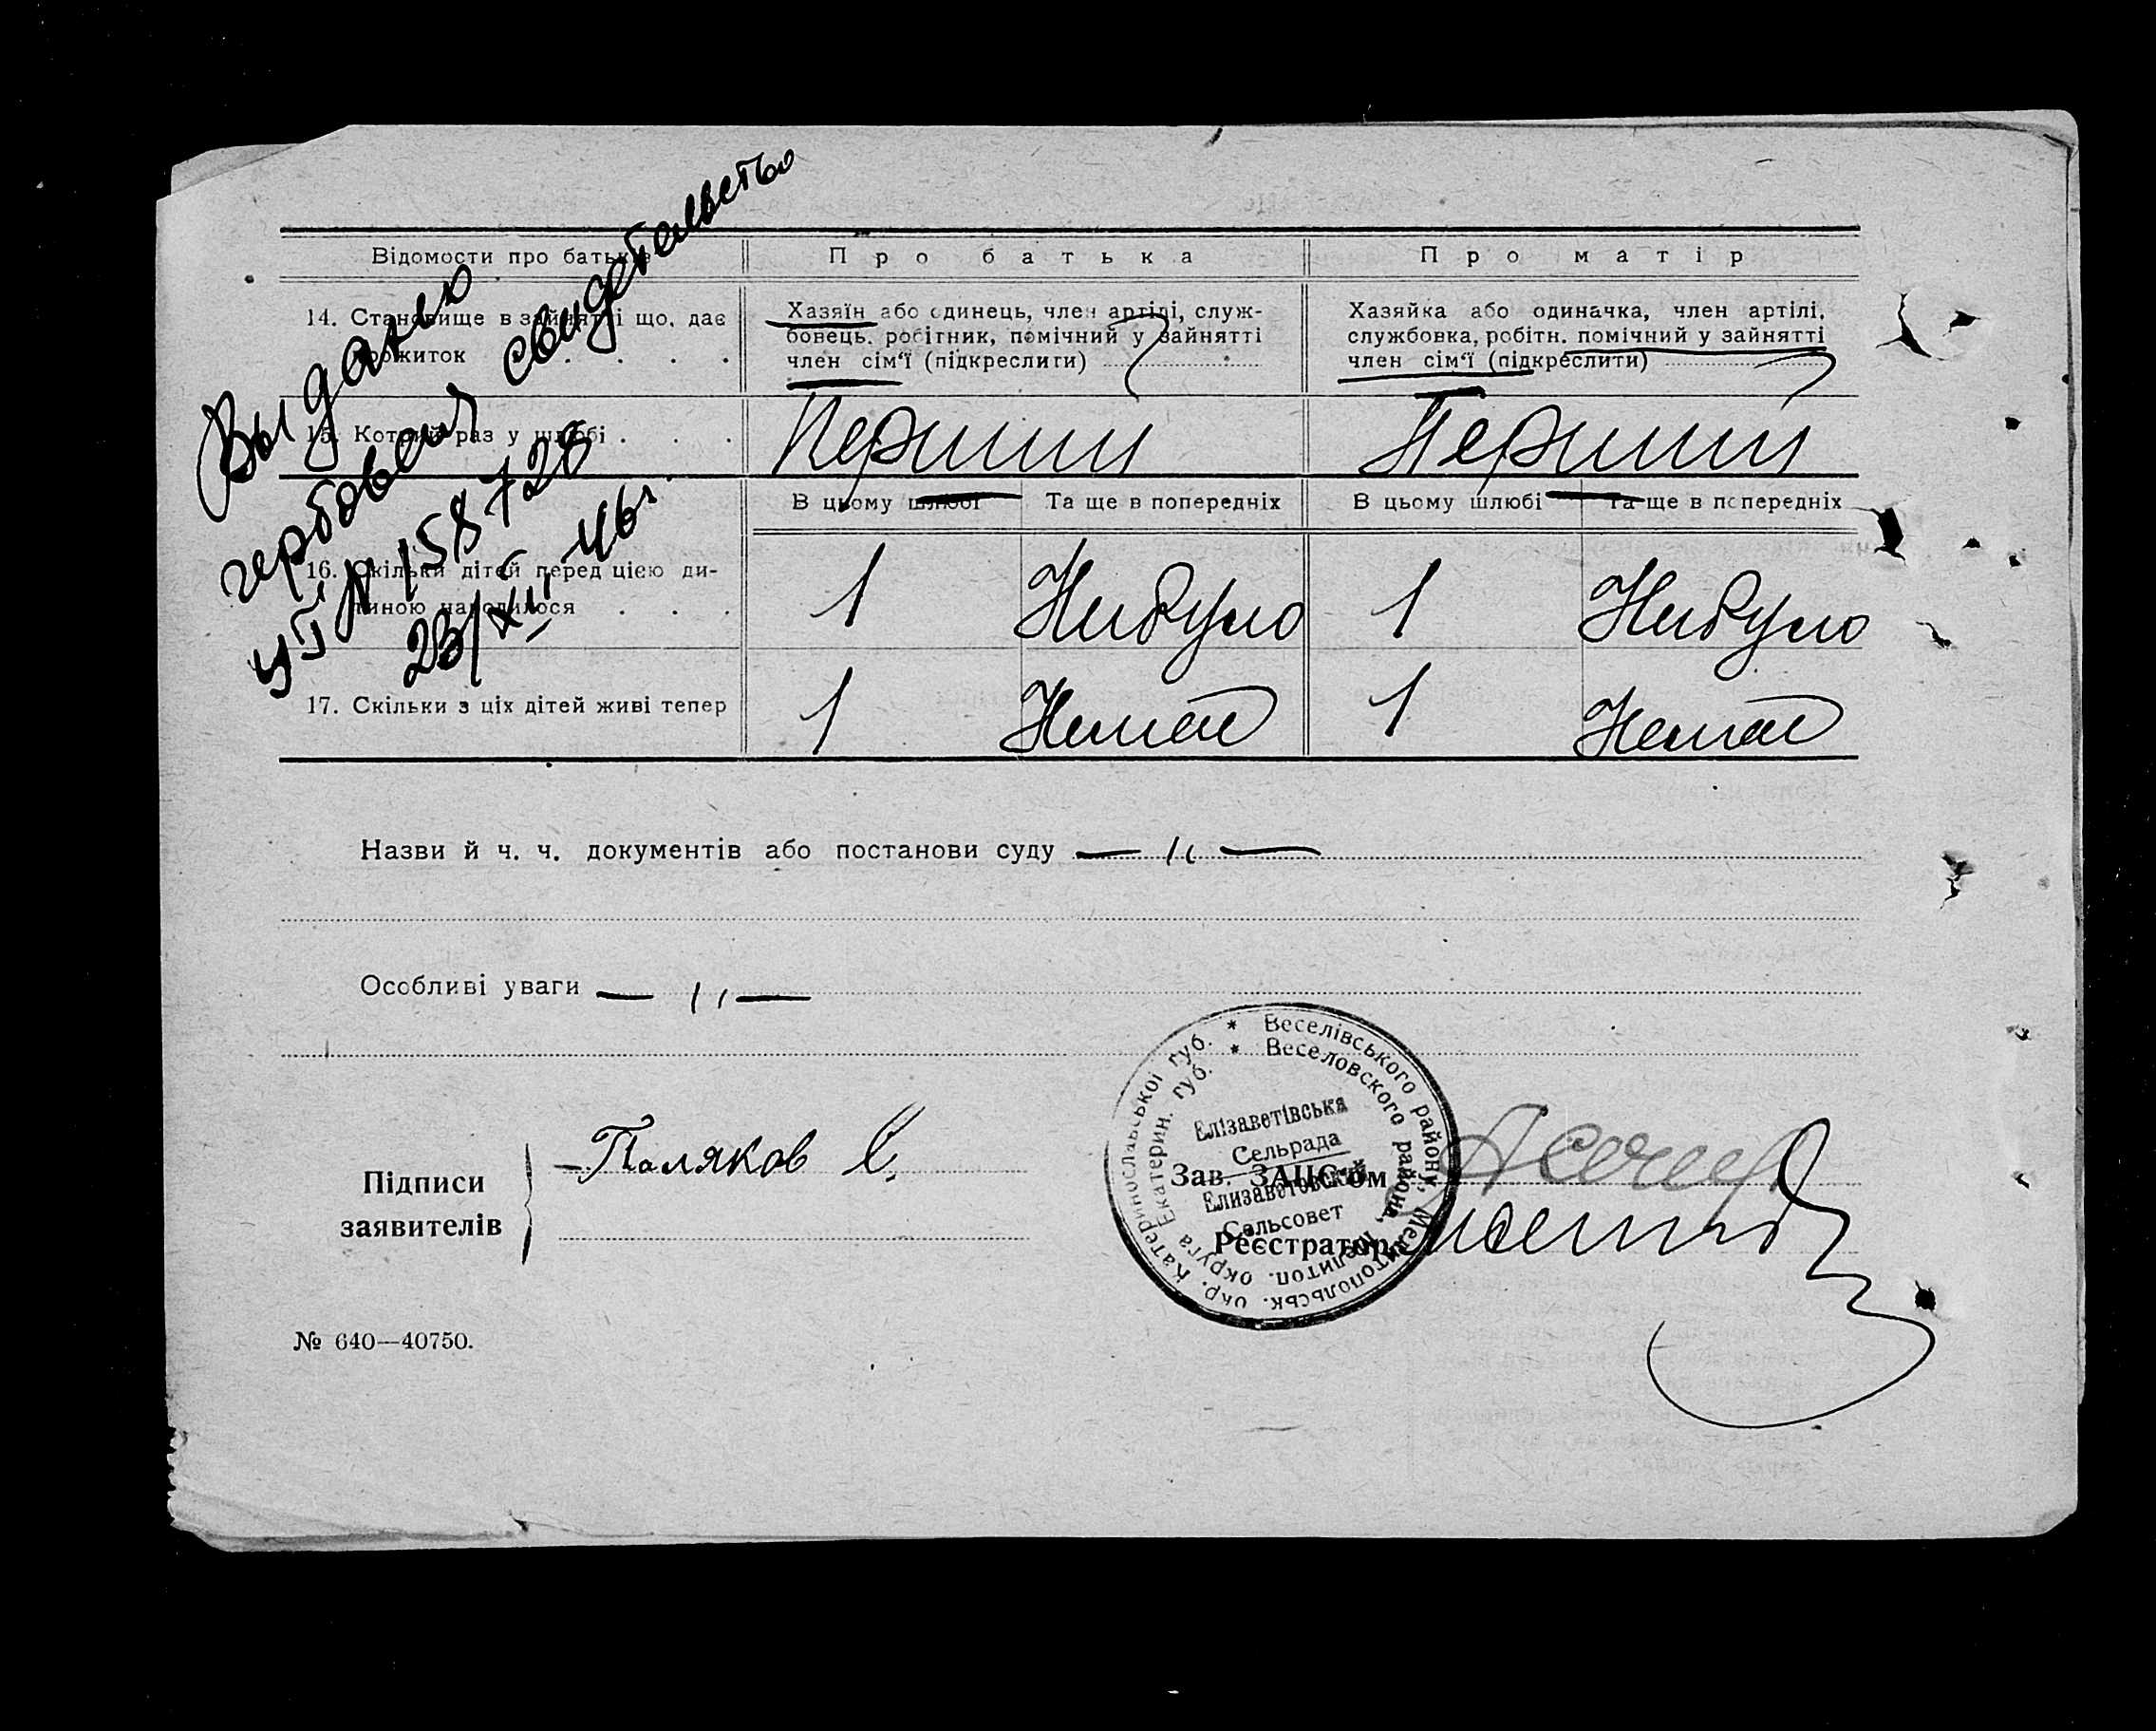 Выдано
гербовое свидетельство
УБ № 158728
23/XII 46 г.
Відомости про батьків
Про батька
Про матір
14. Становище в зайнятті що, дає
прожиток . . . .
Хазяїн або одинець, член артілі, служ-
бовець, робітник, помічний у зайнятті
член сім'ї (підкреслити)
Хазяйка або одиначка, член артілі,
службовка, робітн. помічний у зайнятті
член сім'ї (підкреслити)
15. Котрий раз у шлюбі . . .
Перший
Перший
В цьому шлюбі
Та ще в попередніх
В цьому шлюбі
Та ще в попередніх
16. Скільки дітей перед цією ди-
тиною народилося . . .
1
Небуло
1
Небуло
17. Скільки з ціх дітей живі тепер
1
Немає
1
Немає
Назви й ч. ч. документів або постанови суду — // —
Особливі уваги — // —
Підписи
заявителів
Поляков С.
* Веселівського району, Мелитопольськ. окр. Катеринославської губ.
* Веселовского района, Мелитоп. округа Екатерин. губ.
Елізаветівська
Сельрада
Елизаветовский
Сельсовет
Зав. ЗАЦС'ом
Реєстратор
№ 640—40750.